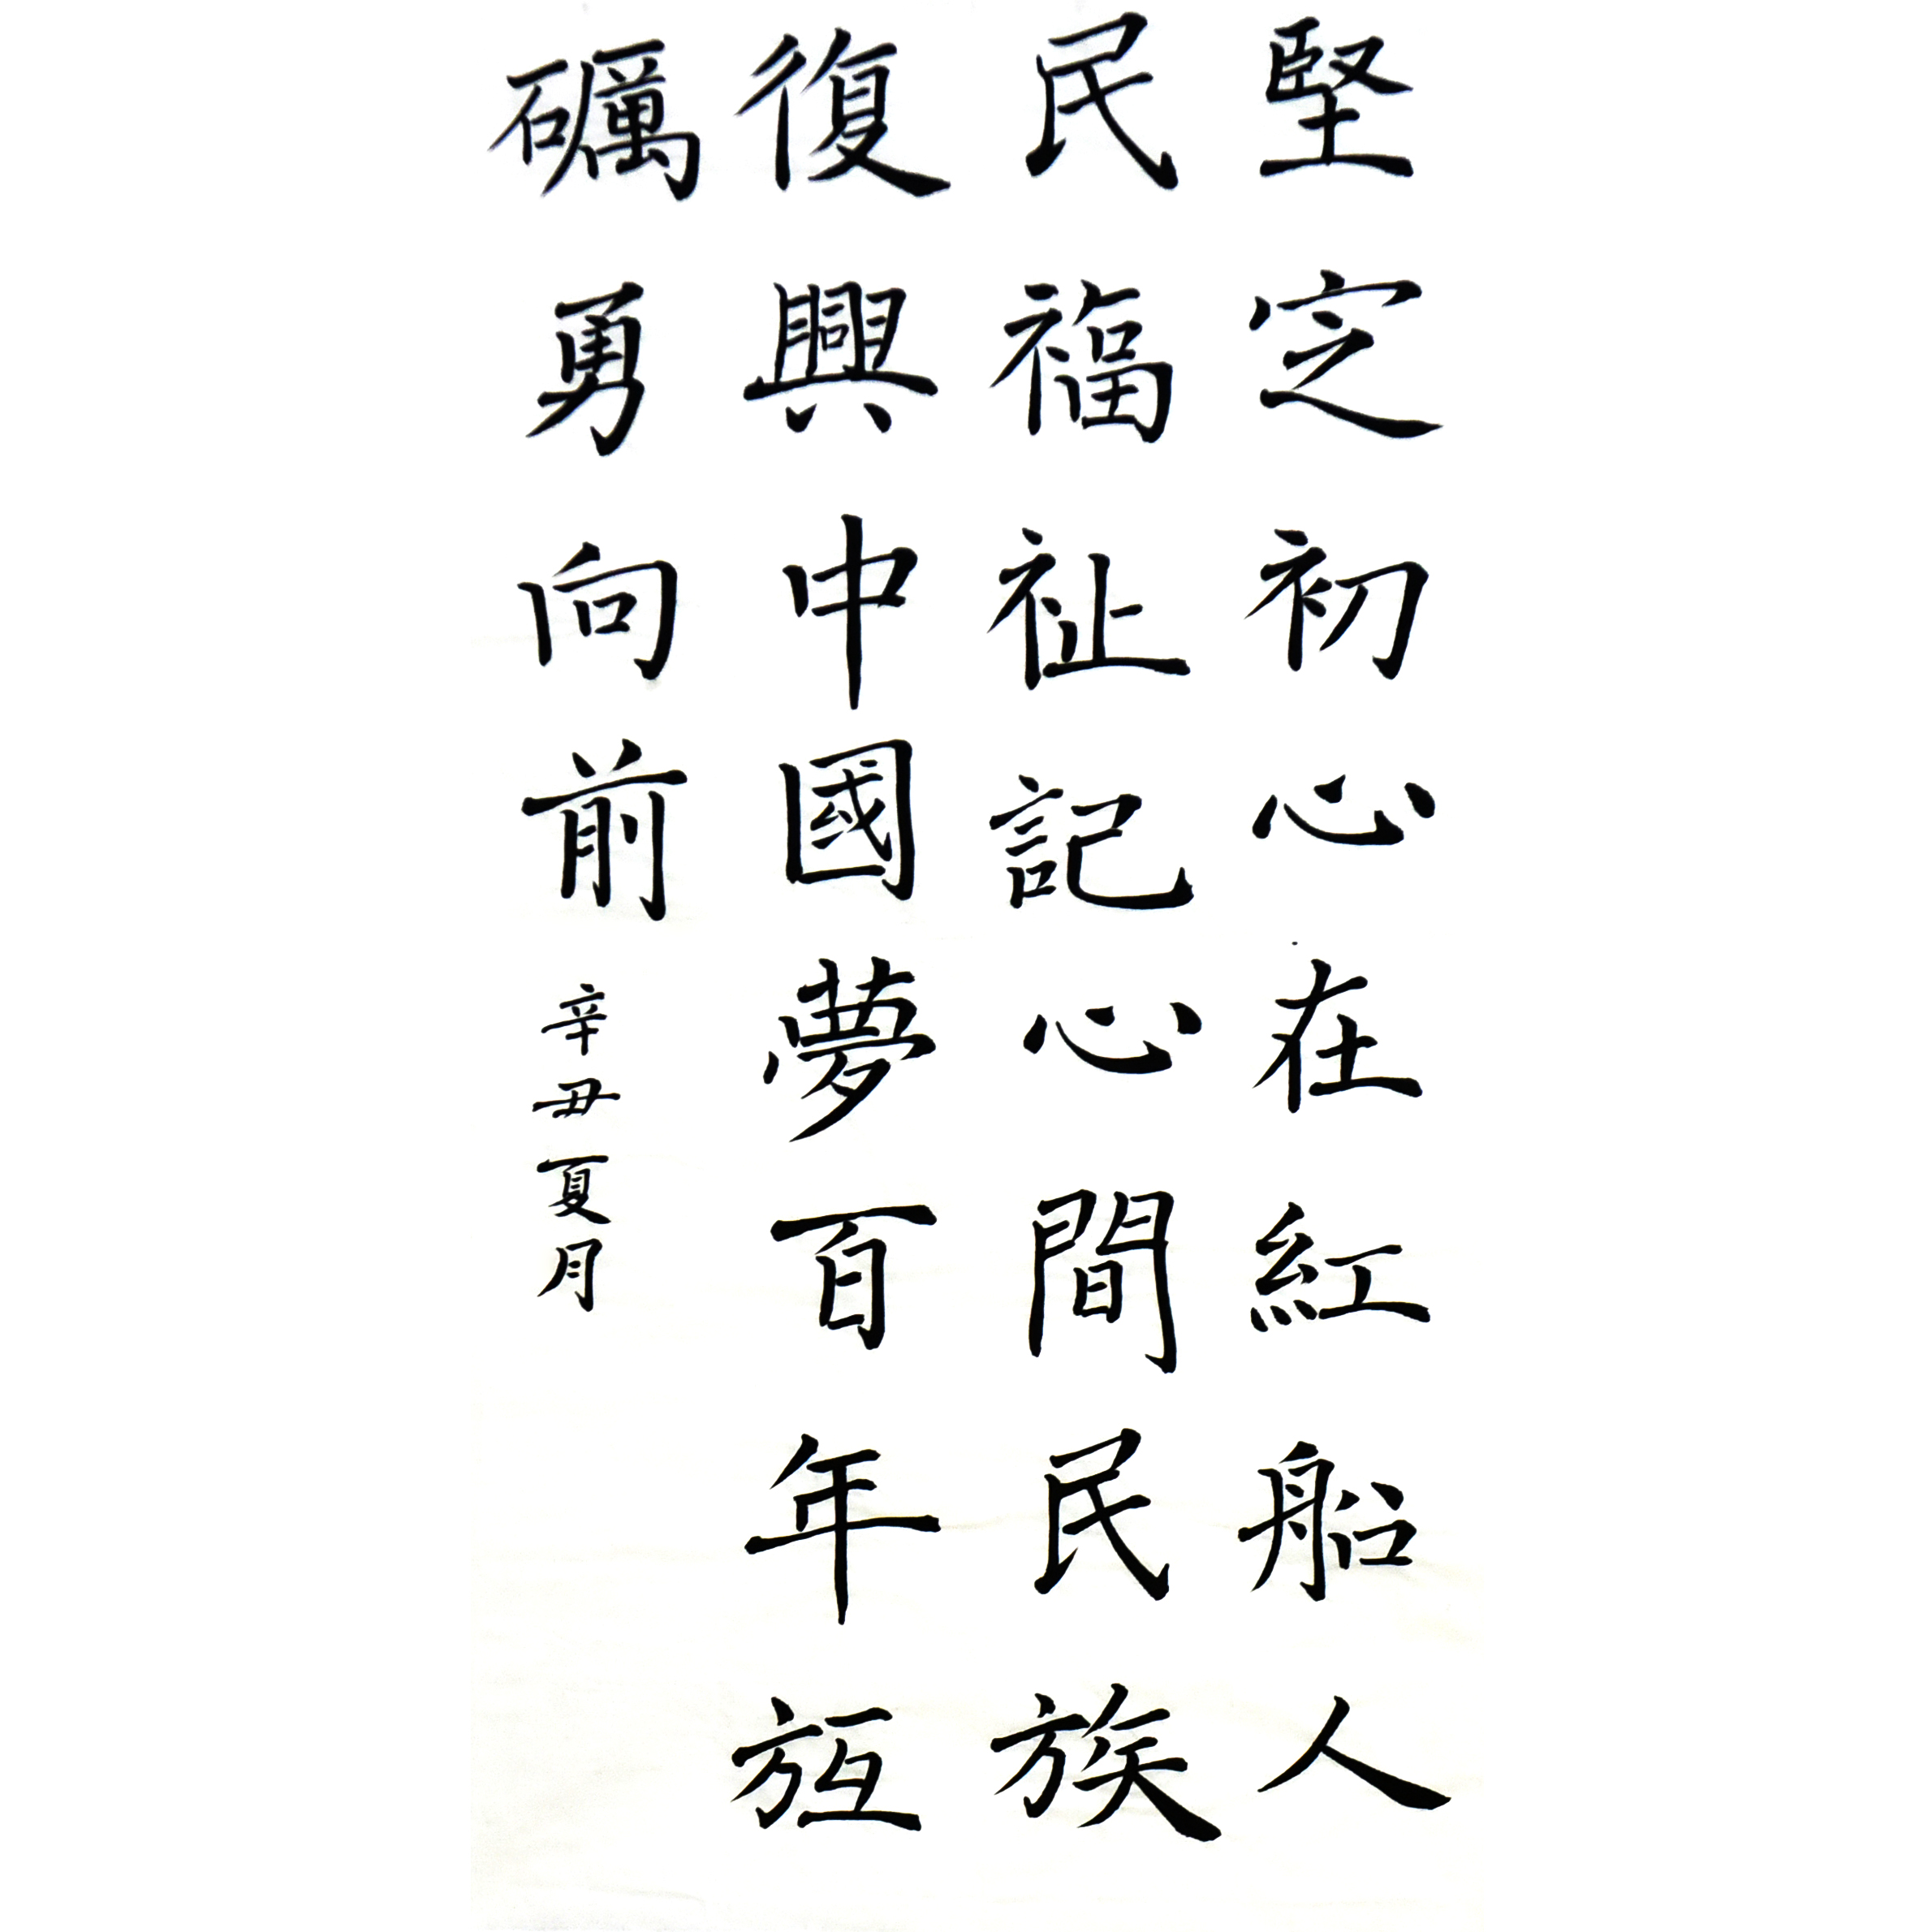 堅定初心在紅船人
民福祉記心間民族
復興中國夢百年
礪勇向前
辛丑夏月